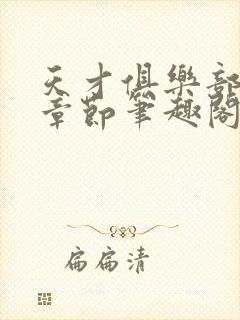 天才俱樂部
章節筆趣閣
扁扁清